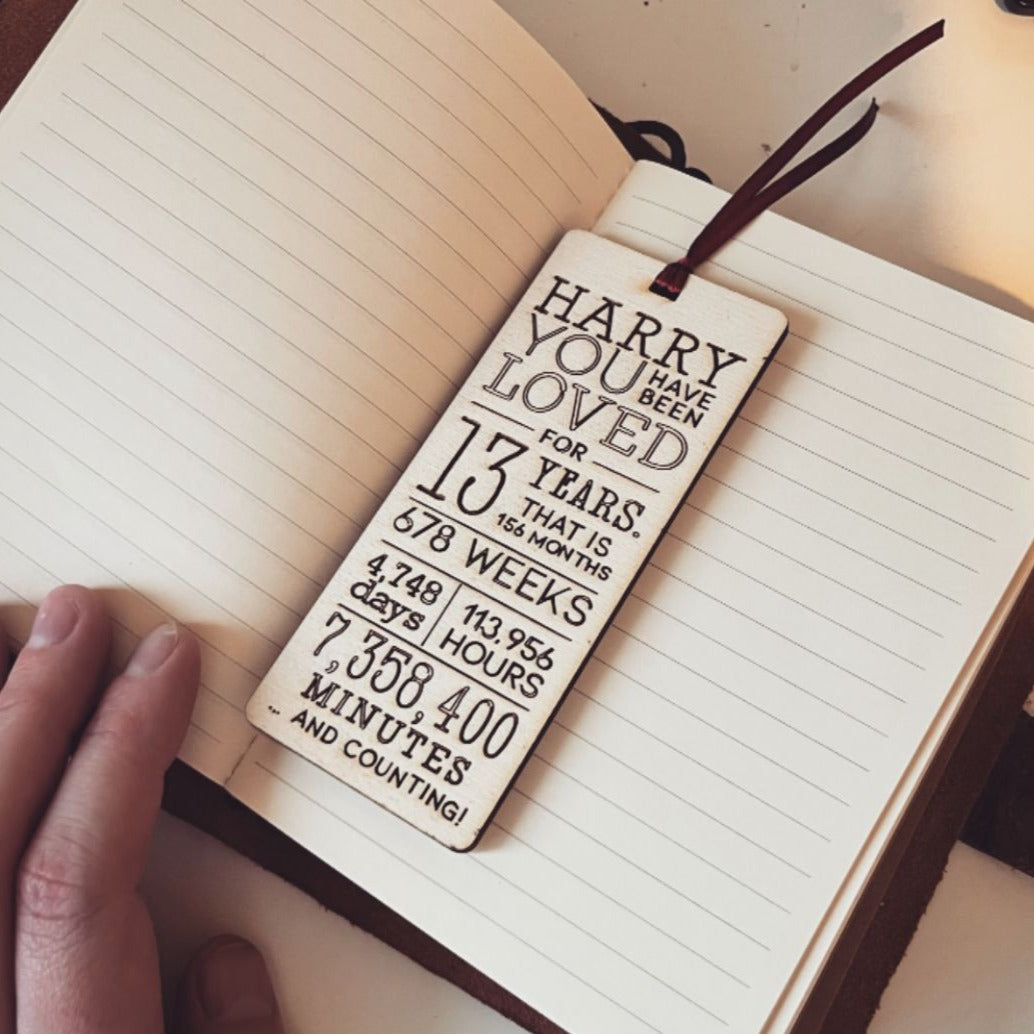 HARRY
YOU HAVE BEEN
LOVED
FOR
13 YEARS.
THAT IS
156 MONTHS
678 WEEKS
4,748 days
113,956 HOURS
7,358,400
MINUTES
... AND COUNTING!